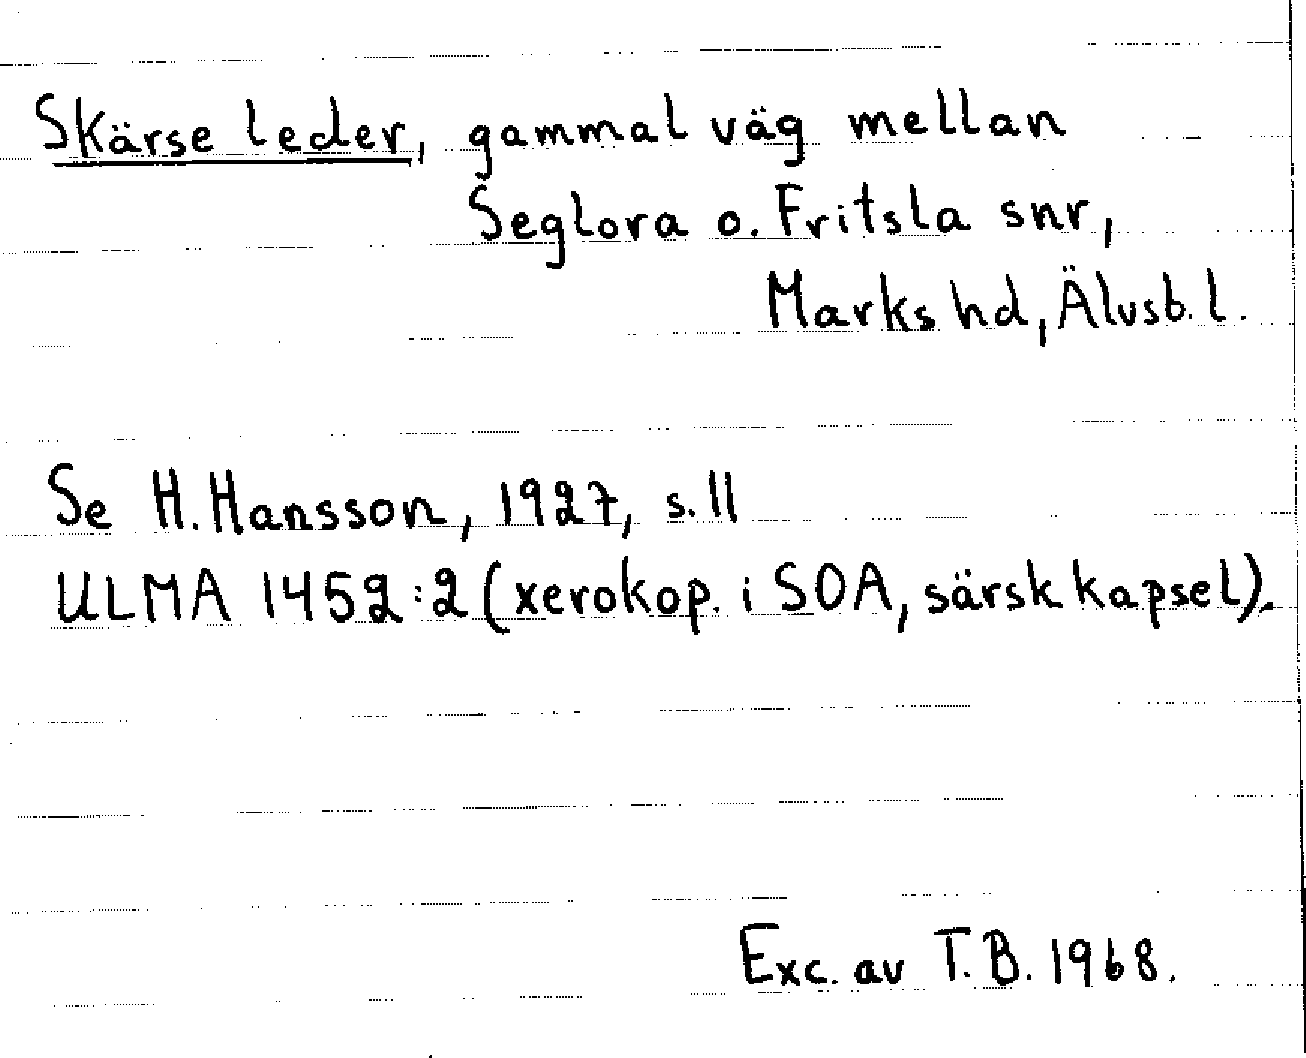 Skärse leder, gammal väg mellan
Seglora o. Fritsla snr,
Marks hd, Älvsb. l.
Se H. Hansson, 1927, s. 11
ULMA 1452:2 (xerokop. i SOA, särsk kapsel).
Exc. av T.B. 1968.